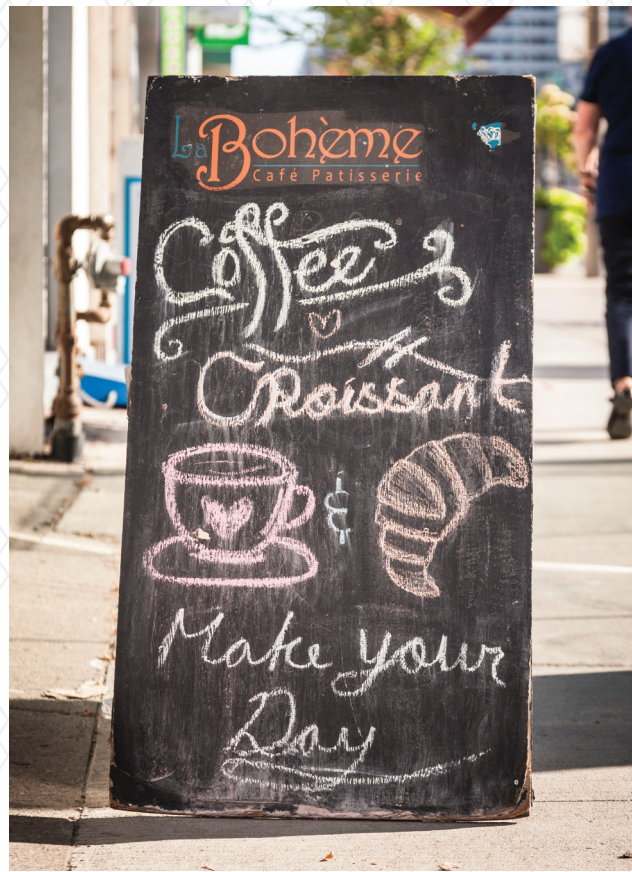 La Bohème
Café Patisserie
Coffee
Croissant
&
Make your
Day